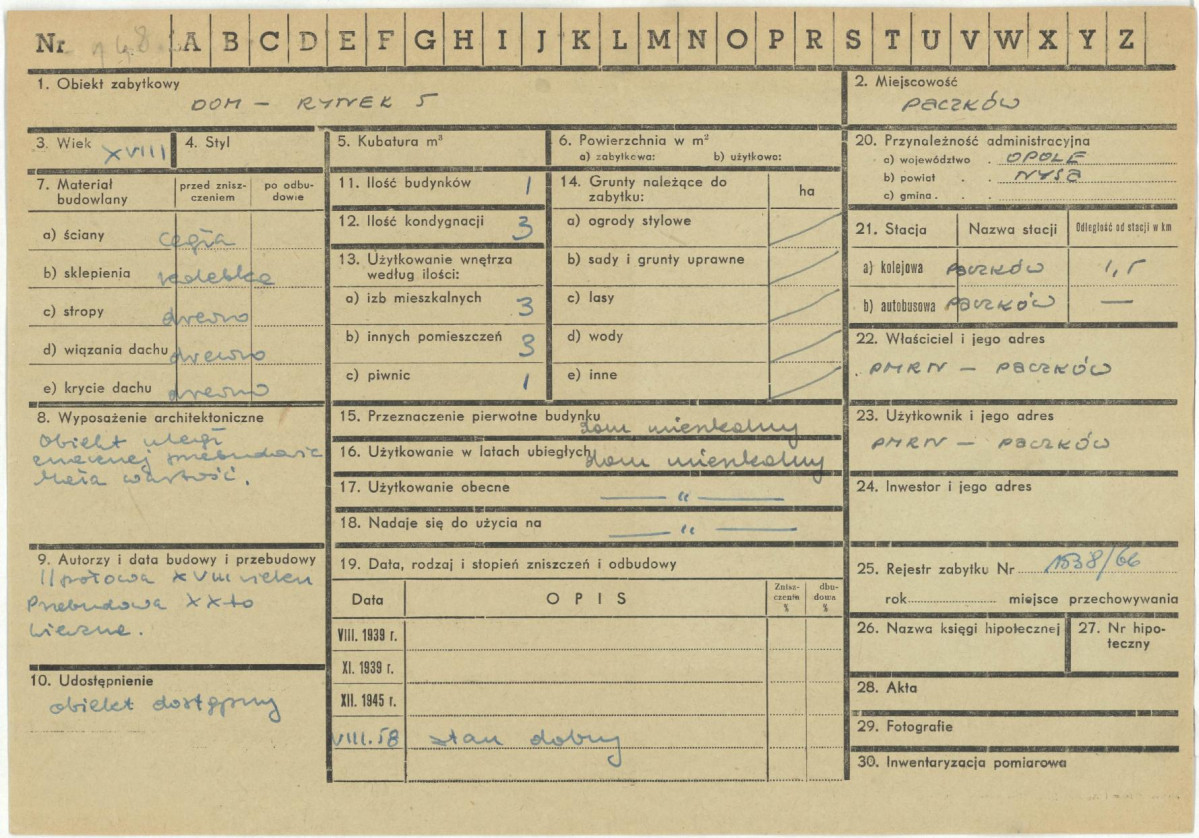 Nr A B C D E F G H I J K L M N O P R S T U V W X Y Z
1. Obiekt zabytkowy
DOM — RYNEK 5
2. Miejscowość
PACZKÓW
3. Wiek XVIII
4. Styl
5. Kubatura m³
6. Powierzchnia w m²
a) zabytkowa: b) użytkowa:
20. Przynależność administracyjna
a) województwo . OPOLE
b) powiat . . NYSA
c) gmina . . .
7. Materiał budowlany
przed zniszczeniem
po odbudowie
a) ściany cegła
b) sklepienia kolebka
c) stropy drewno
d) wiązania dachu drewno
e) krycie dachu drewno
11. Ilość budynków 1
12. Ilość kondygnacji 3
13. Użytkowanie wnętrza
według ilości:
a) izb mieszkalnych 3
b) innych pomieszczeń 3
c) piwnic 1
14. Grunty należące do
zabytku:
ha
a) ogrody stylowe
b) sady i grunty uprawne
c) lasy
d) wody
e) inne
21. Stacja Nazwa stacji Odległość od stacji w km
a) kolejowa PACZKÓW 1,5
b) autobusowa PACZKÓW —
22. Właściciel i jego adres
PMRN — PACZKÓW
8. Wyposażenie architektoniczne
Obiekt uległ
znacznej przebudowie
Mała wartość.
15. Przeznaczenie pierwotne budynku
dom mieszkalny
16. Użytkowanie w latach ubiegłych dom mieszkalny
17. Użytkowanie obecne — „ —
18. Nadaje się do użycia na — „ —
23. Użytkownik i jego adres
PMRN — PACZKÓW
24. Inwestor i jego adres
9. Autorzy i data budowy i przebudowy
II połowa XVIII wieku
Przebudowa XX-to
wieczne.
19. Data, rodzaj i stopień zniszczeń i odbudowy
Data OPIS Zniszczenia % dbudowa %
VIII. 1939 r.
XI. 1939 r.
XII. 1945 r.
VIII.58 stan dobry
25. Rejestr zabytku Nr 1538/66
rok miejsce przechowywania
26. Nazwa księgi hipotecznej
27. Nr hipoteczny
10. Udostępnienie
obiekt dostępny
28. Akta
29. Fotografie
30. Inwentaryzacja pomiarowa